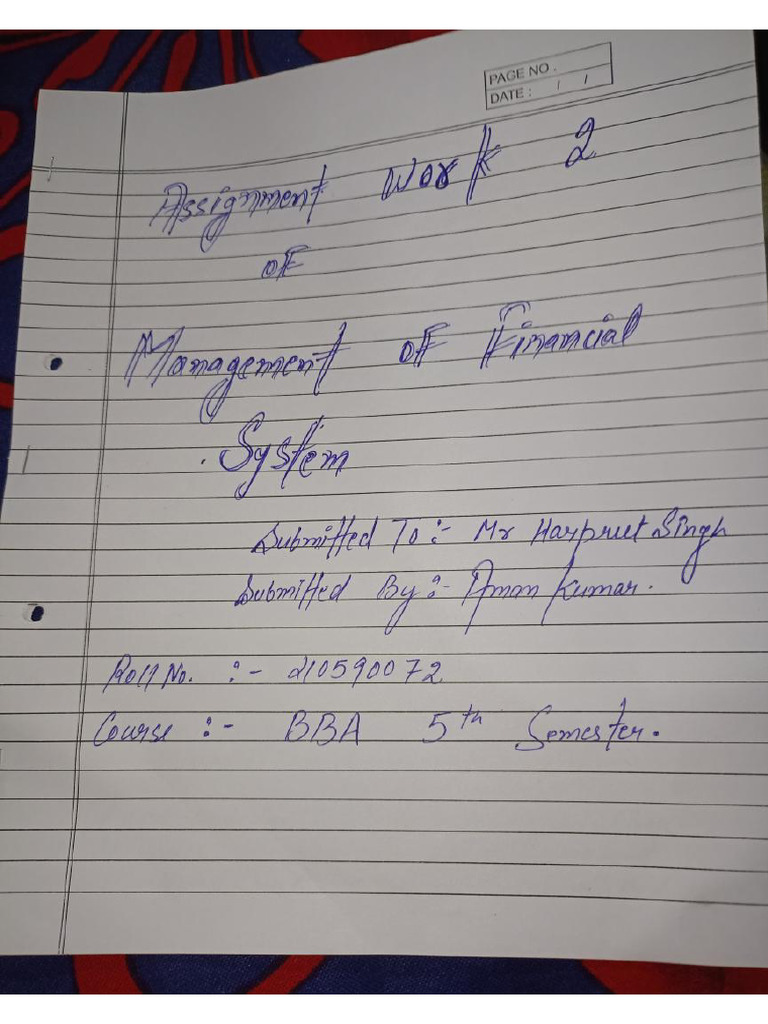 PAGE NO.
DATE: / /
Assignment Work 2
of
Management of Financial
System
Submitted To :- Mr Harpreet Singh
Submitted By :- Aman Kumar.
Roll No. :- 210590072
Course :- BBA 5th Semester.